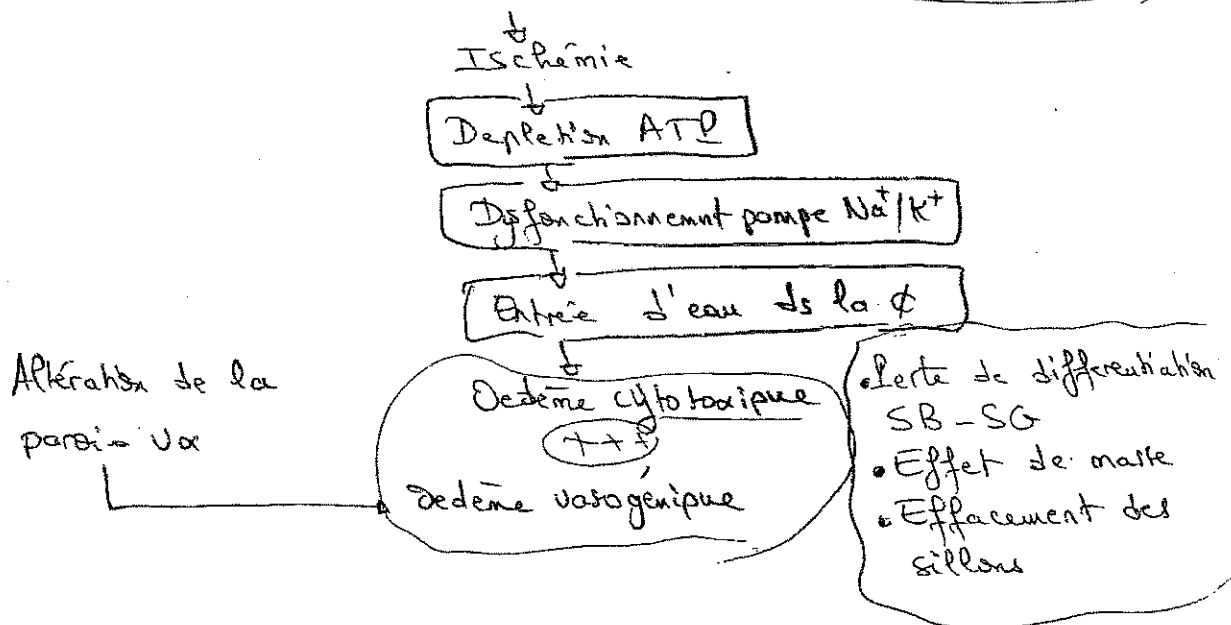 Ischémie
Depletion ATP
Dysfonctionnemnt pompe Na⁺/K⁺
Entrée d'eau ds la ¢
Altération de la
paroi Vx
Oedème cytotoxique
+++
oedème vasogénique
•Perte de differentiation
SB-SG
• Effet de masse
• Effacement des
sillons